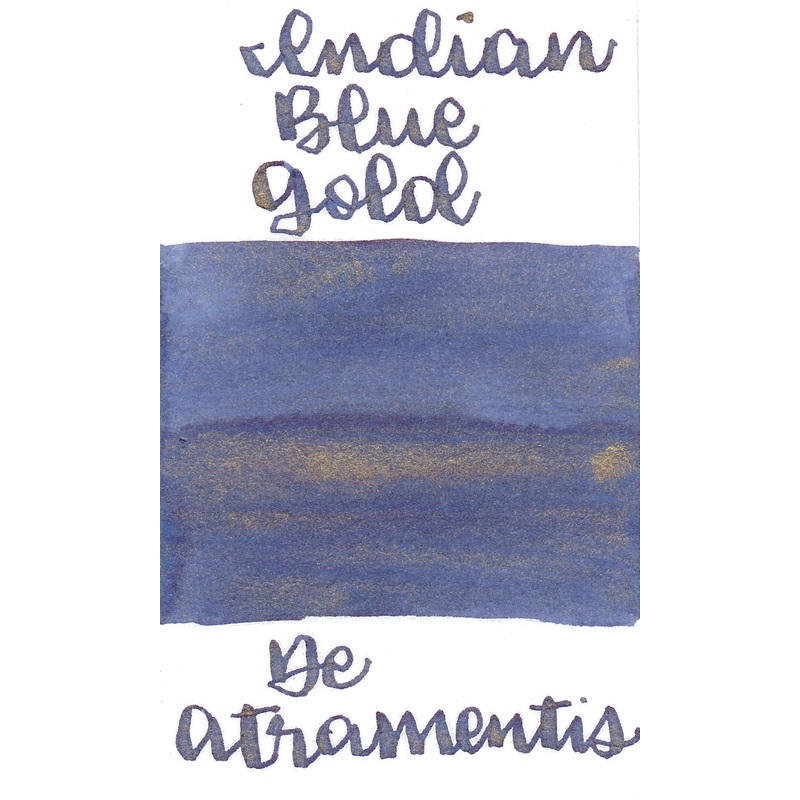 Indian
Blue
Gold
De
Atramentis